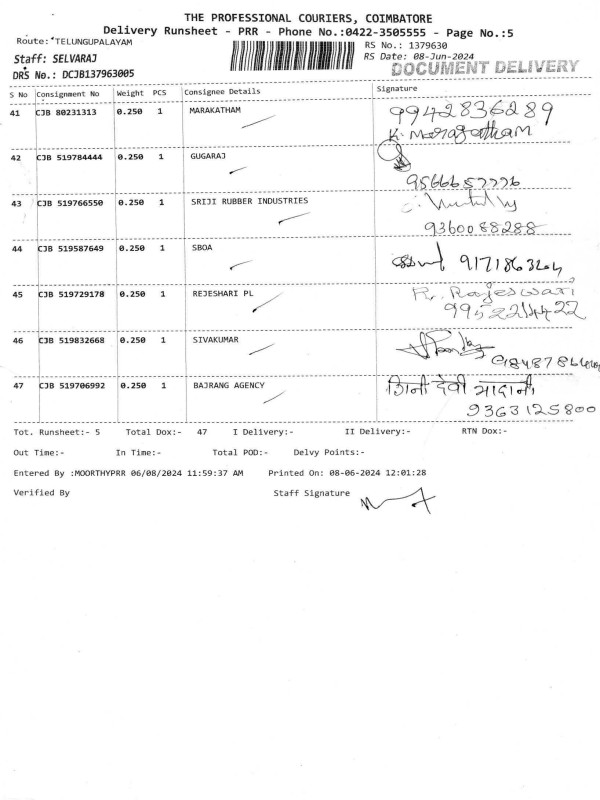 THE PROFESSIONAL COURIERS, COIMBATORE
Delivery Runsheet - PRR - Phone No.:0422-3505555 - Page No.:5
Route: TELUNGUPALAYAM
RS No.: 1379630
Staff: SELVARAJ
RS Date: 08-Jun-2024
DRS No.: DCJB137963005
DOCUMENT DELIVERY
S No Consignment No Weight PCS Consignee Details Signature
41 CJB 80231313 0.250 1 MARAKATHAM 9942836289
K. Maragatham
42 CJB 519784444 0.250 1 GUGARAJ
43 CJB 519766550 0.250 1 SRIJI RUBBER INDUSTRIES
9360088288
44 CJB 519587649 0.250 1 SBOA
45 CJB 519729178 0.250 1 REJESHARI PL R. Rajeswari
46 CJB 519832668 0.250 1 SIVAKUMAR
47 CJB 519706992 0.250 1 BAJRANG AGENCY देवी
9363125800
Tot. Runsheet:- 5 Total Dox:- 47 I Delivery:- II Delivery:- RTN Dox:-
Out Time:- In Time:- Total POD:- Delvy Points:-
Entered By :MOORTHYPRR 06/08/2024 11:59:37 AM Printed On: 08-06-2024 12:01:28
Verified By Staff Signature